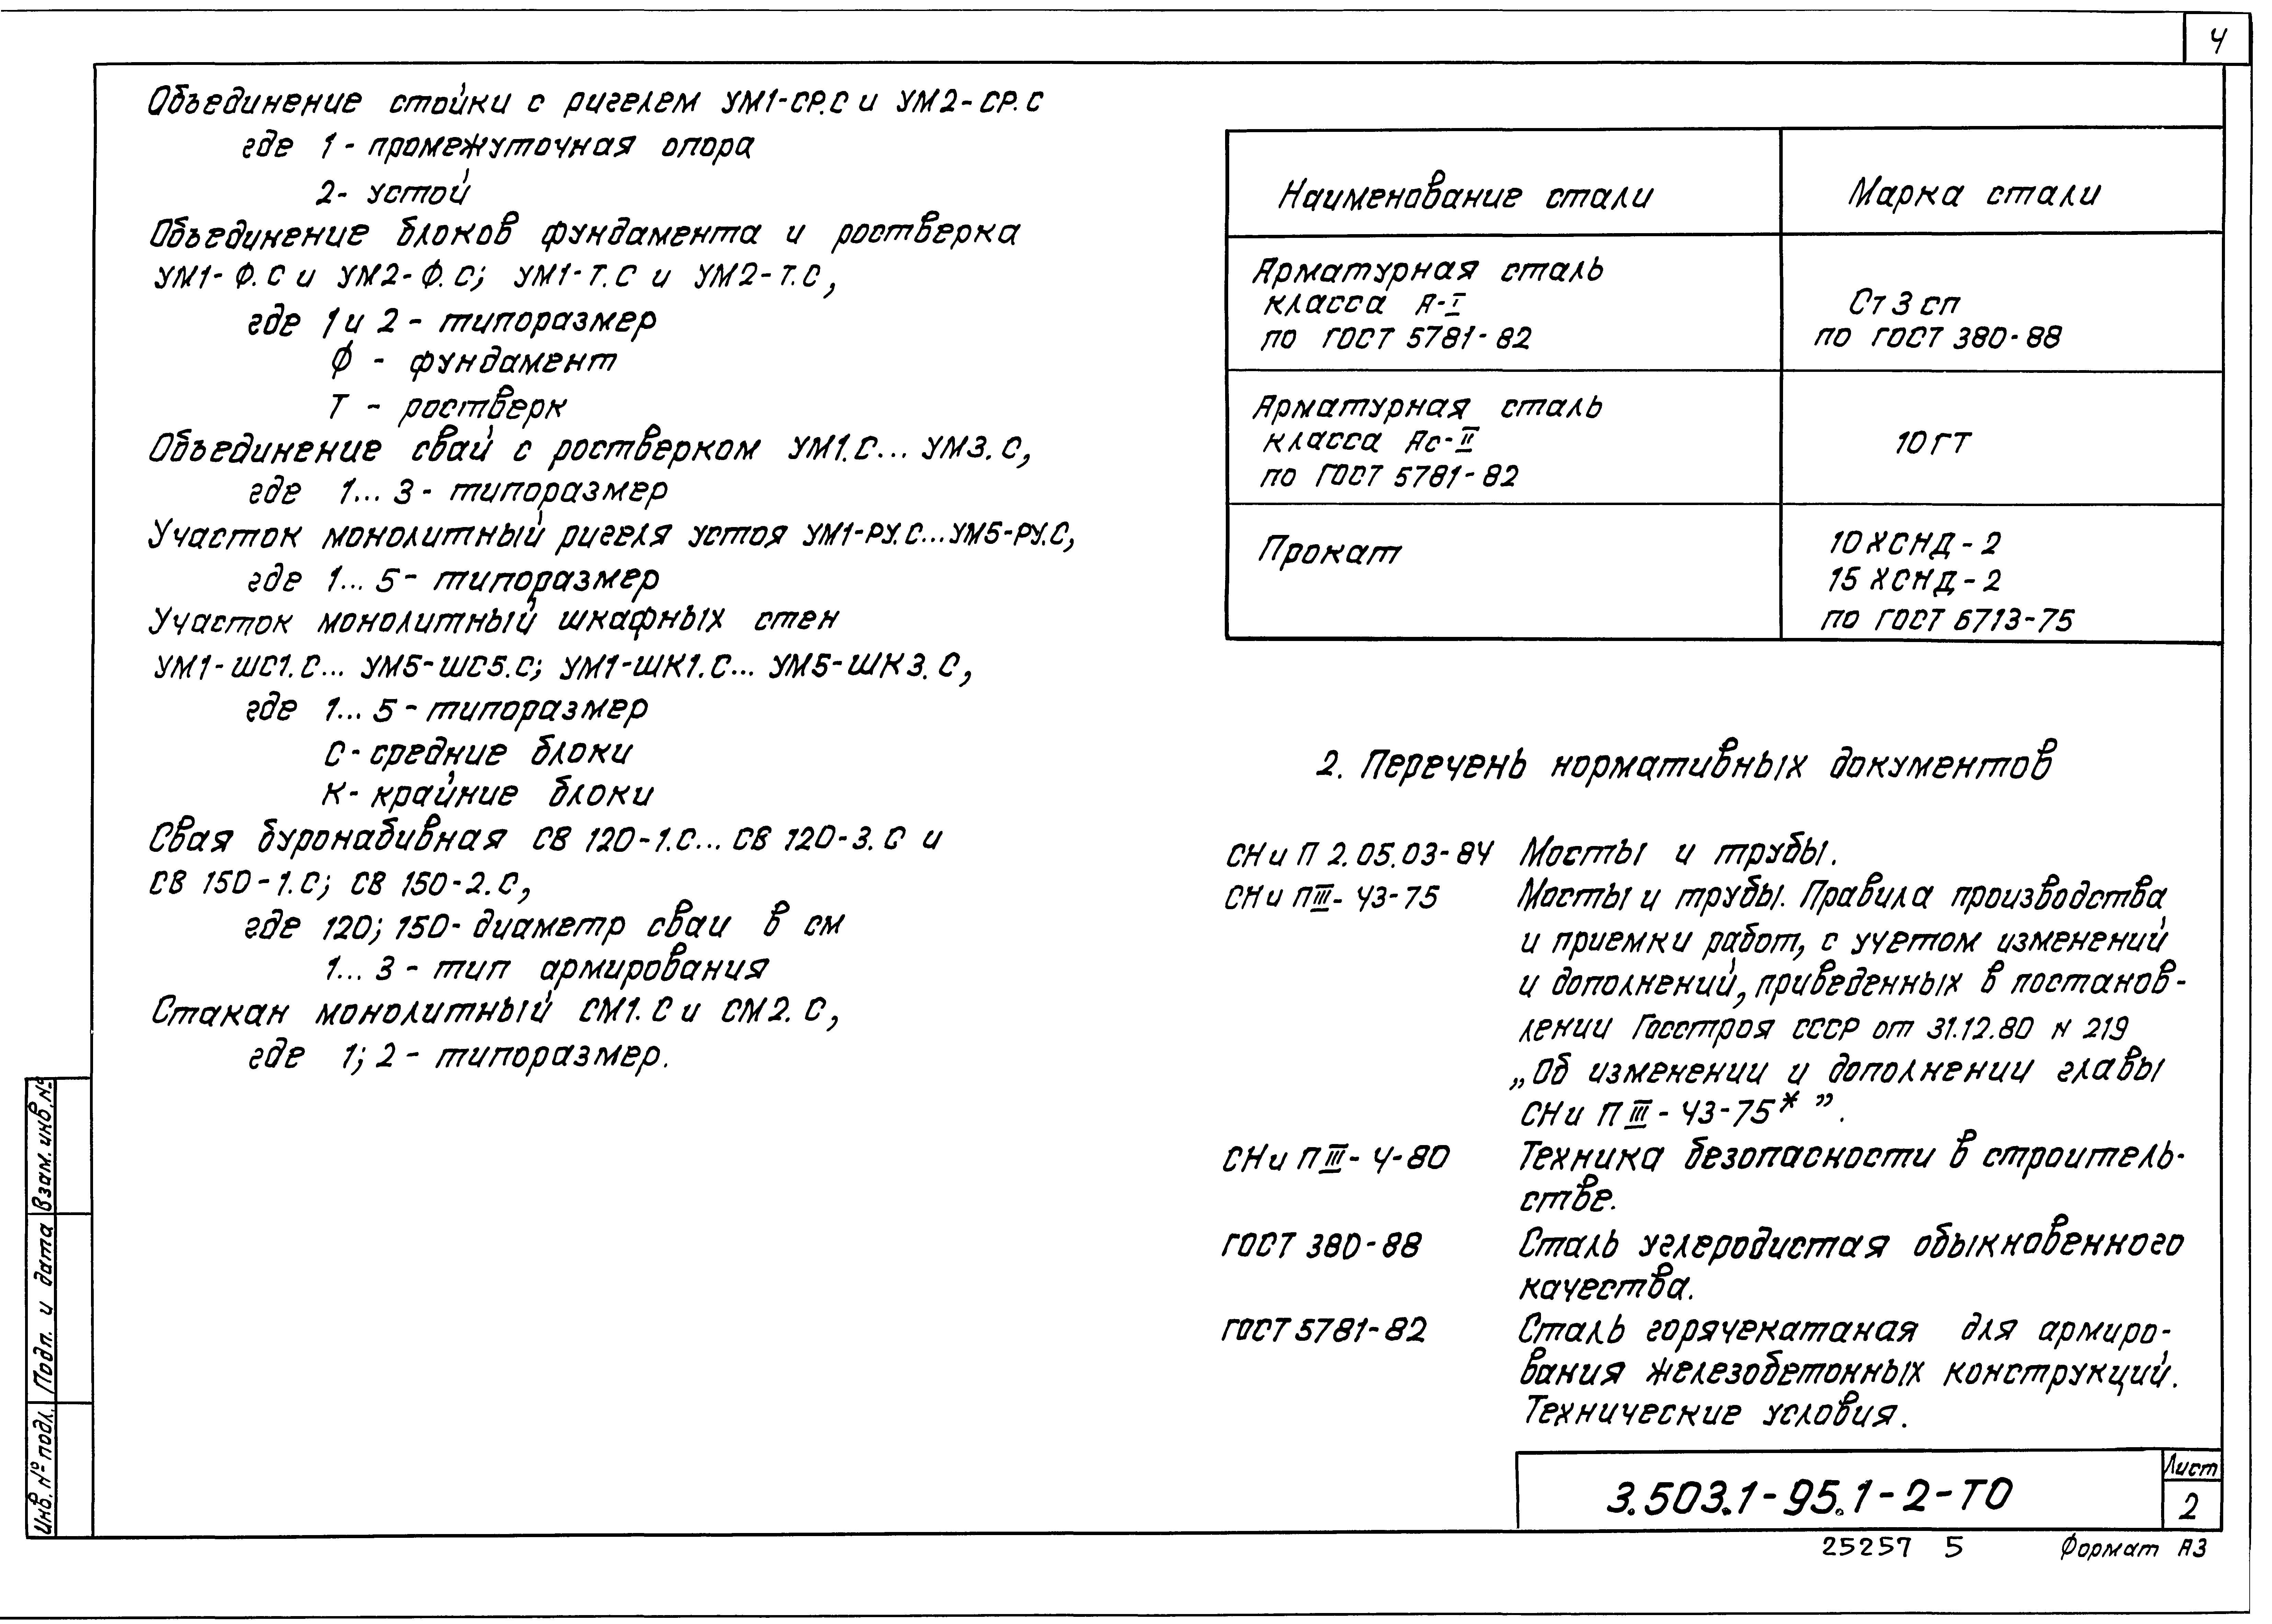 4
Объединение стойки с ригелем УМ1-СР.С и УМ2-СР.С
где 1 - промежуточная опора
2- устой
Объединение блоков фундамента и ростверка
УМ1-Ф.С и УМ2-Ф.С; УМ1-Т.С и УМ2-Т.С,
где 1 и 2 - типоразмер
Ф - фундамент
Т - ростверк
Объединение свай с ростверком УМ1.С... УМ3.С,
где 1... 3 - типоразмер
Участок монолитный ригеля устоя УМ1-РУ.С...УМ5-РУ.С,
где 1... 5 - типоразмер
Участок монолитный шкафных стен
УМ1-ШС1.С... УМ5-ШС5.С; УМ1-ШК1.С... УМ5-ШК3.С,
где 1... 5 - типоразмер
С - средние блоки
К - крайние блоки
Свая буронабивная СВ 120-1.С... СВ 120-3.С и
СВ 150-1.С; СВ 150-2.С,
где 120; 150- диаметр сваи в см
1... 3 - тип армирования
Стакан монолитный СМ1.С и СМ2.С,
где 1; 2 - типоразмер.
Наименование стали
Марка стали
Арматурная сталь
класса А-I
по ГОСТ 5781-82
Ст 3 сп
по ГОСТ 380-88
Арматурная сталь
класса Ас-II
по ГОСТ 5781-82
10 ГТ
Прокат
10 ХСНД - 2
15 ХСНД - 2
по ГОСТ 6713-75
2. Перечень нормативных документов
СНиП 2.05.03-84 Мосты и трубы.
СНиП III- 43-75 Мосты и трубы. Правила производства
и приемки работ, с учетом изменений
и дополнений, приведенных в постанов-
лении Госстроя СССР от 31.12.80 N 219
„Об изменении и дополнении главы
СНиП III - 43-75* ”.
СНиП III- 4-80 Техника безопасности в строитель-
стве.
ГОСТ 380-88 Сталь углеродистая обыкновенного
качества.
ГОСТ 5781-82 Сталь горячекатаная для армиро-
вания железобетонных конструкций.
Технические условия.
Взам. инв. №
Подп. и дата
Инв. № подл.
3.503.1-95.1-2-ТО
Лист
2
25257 5
Формат А3